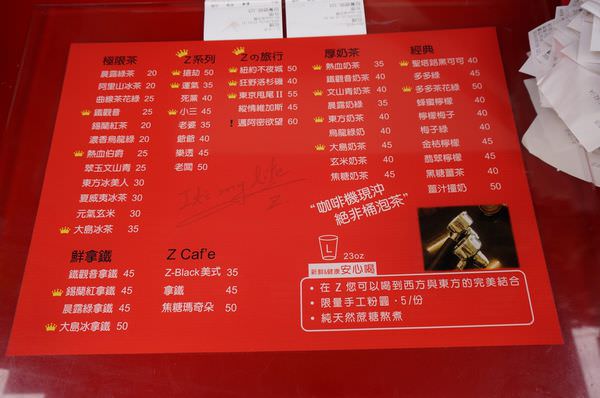 極限茶
晨露綠茶 20
阿里山冰茶 20
曲線茶花綠 25
鐵觀音 25
錫蘭紅茶 20
濃香烏龍綠 20
熱血伯爵 25
翠玉文山青 25
東方冰美人 30
夏威夷冰茶 30
元氣玄米 30
大島冰茶 35
Z系列
搶劫 50
運氣 35
死黨 40
小三 45
老婆 35
爺爺 40
樂透 45
老闆 50
Zの旅行
紐約不夜城 60
狂野洛杉磯 40
東京甩尾II 55
縱情維加斯 45
! 邁阿密欲望 60
厚奶茶
熱血奶茶 35
鐵觀音奶茶 35
文山青奶茶 35
晨露奶綠 35
東方奶茶 40
烏龍綠奶 40
大島奶茶 45
玄米奶茶 40
焦糖奶茶 45
經典
聖塔路黑可可 40
多多綠 45
多多茶花綠 50
蜂蜜檸檬 40
檸檬梅子 40
梅子綠 40
金桔檸檬 45
翡翠檸檬 45
黑糖薑茶 40
薑汁撞奶 50
It's my life
“咖啡機現沖
絕非桶泡茶”
鮮拿鐵
鐵觀音拿鐵 45
錫蘭紅拿鐵 45
晨露綠拿鐵 45
大島冰拿鐵 50
Z Caf'e
Z-Black美式 35
拿鐵 45
焦糖瑪奇朵 50
L
23oz
新鮮&健康 安心喝
• 在 Z 您可以喝到西方與東方的完美結合
• 限量手工粉圓．5/份
• 純天然蔗糖熬煮